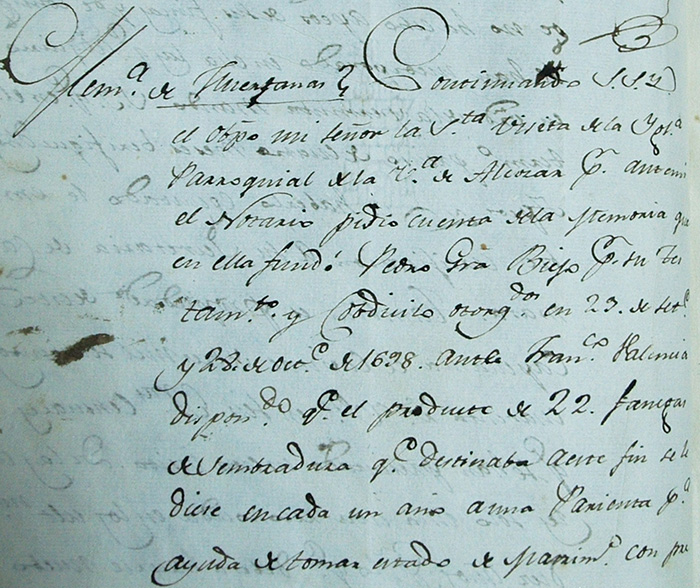 Mem.ª de Huerfanas Continuando S.S.Y.
el Obpo mi señor la S.ta Visita de la Ygl.ª
Parroquial de la V.ª de Alcozar P.r antemi
el Notario pidio cuenta de la Memoria que
en ella fundó Pedro Gra Biejo P.r su tes
tam.to y Cobdicilo otorg.dos en 23. de set.e
y 28. de Oct.e de 1698. ante Fran.co Valencia
dispon.do q.e el producto de 22. fanegas
de sembradura q.e destinaba aeste fin se le
diese en cada un año auna Parienta p.ª
ayuda de tomar estado de Matrim.º con pre